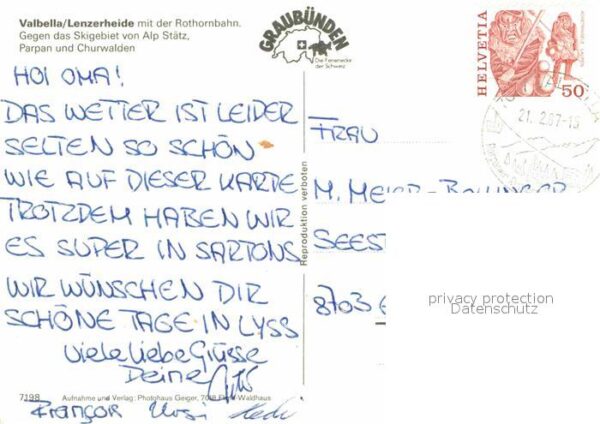 Valbella/Lenzerheide mit der Rothornbahn.
Gegen das Skigebiet von Alp Stätz,
Parpan und Churwalden
GRAUBÜNDEN
Die Ferienecke
der Schweiz
HELVETIA
50
21.2.87-15
HOI OMA!
DAS WETTER IST LEIDER
SELTEN SO SCHÖN
WIE AUF DIESER KARTE
TROTZDEM HABEN WIR
ES SUPER IN SARTONS
WIR WÜNSCHEN DIR
SCHÖNE TAGE IN LYSS
Viele liebe Grüsse
Deine
François Ursi
7198 Aufnahme und Verlag: Photohaus Geiger, Flims-Waldhaus
Reproduktion verboten
FRAU
M. MEIER-BOLLINGER
SEEST
8703
privacy protection
Datenschutz